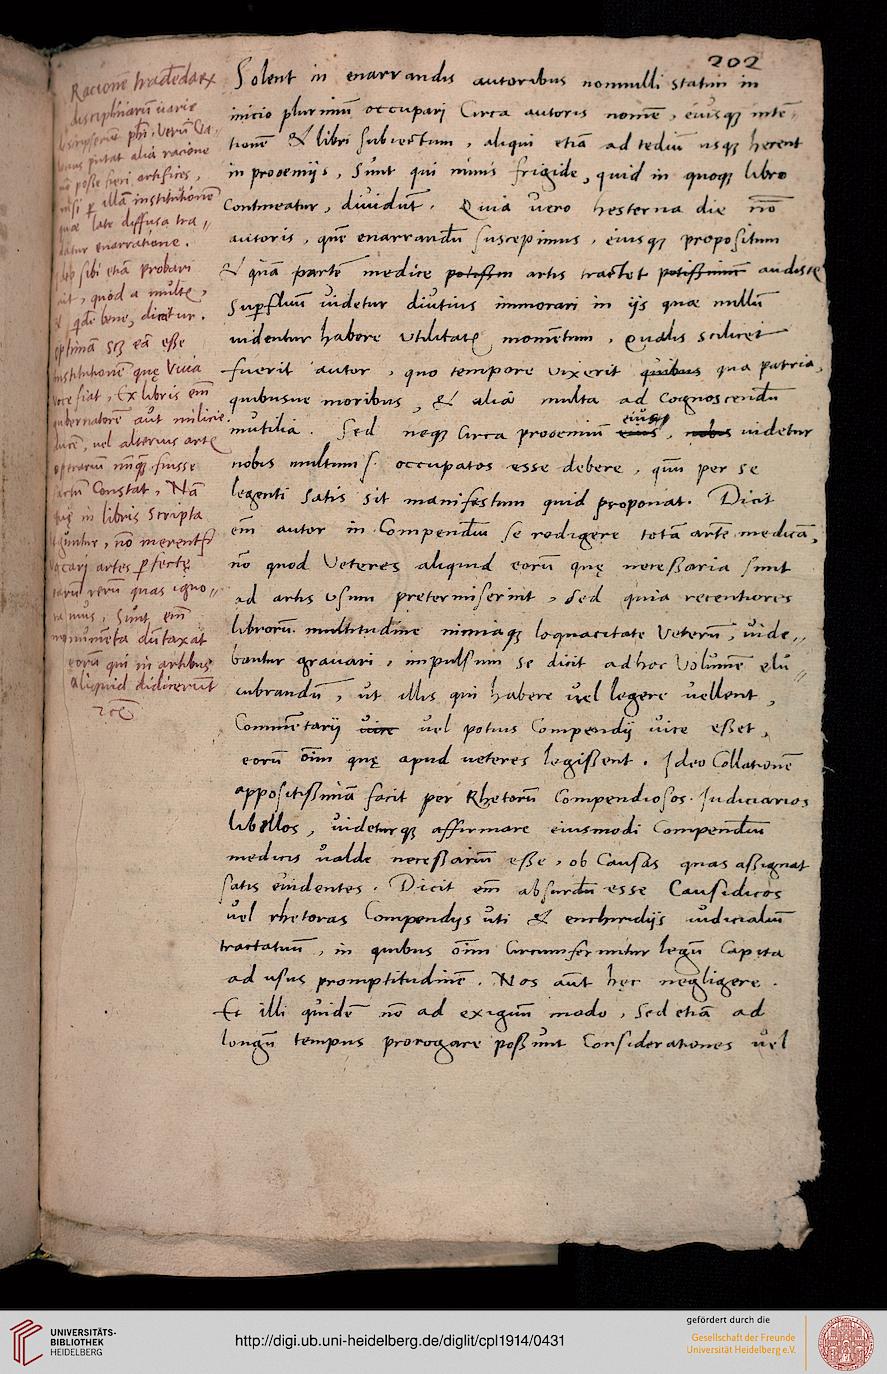 202
Racionē tractēdarꝝ
disciplinarū uarie
phī, Verū Ga-
putat alia racione
nō posse fieri artifices,
nisi ꝑ illā institutionē
quae late diffusa tra„
datur enarratione.
sibi etiā probari
ait, quod a multis,
& qdē bene, dicitur.
optimā scꝫ eā esse
institutionē quę viua
voce fiat, Ex libris em̄
gubernatorē aut milicie
ducē, vel alterius artis
operariū nunqꝫ fuisse
factū Constat, Nā
quę in libris scripta
leguntur, nō merentur
vocari artes ꝑfectę
earū rerū quas igno„
ramus, Sunt em̄
monumēta dūtaxat
eorū qui in artibus
aliquid didicerūt
Solent in enarrandis autoribus nonnulli statim in
inicio plurimū occupari Circa autoris nomē, eiusqꝫ intē-
tionē & libri subiectum, aliqui etiā ad tediū usqꝫ herent
in prooemijs, Sunt qui nimis frigide, quid in quoqꝫ libro
Contineatur, diuidūt. Quia vero hesterna die nō
autoris, quē enarrandū suscepimus, eiusqꝫ propositum
& quā partē medice potissm artis tractet potissimum audistis
Supfluū uidetur diutius immorari in ijs quae nullū
uidentur habere vtilitatis momentum, Qualis scilicet
fuerit autor, quo tempore vixerit quibus qua patria,
quibusue moribus, & alia multa ad Cognoscendū
inutilia. Sed neqꝫ Circa prooemium eius eiusqꝫ, nobis uidetur
nobis multum occupatos esse debere, qūm per se
legenti satis sit manifestum quid proponat. Dicit
em̄ autor in Compendiū se redigere totā artē medicā,
nō quod Veteres aliquid eorū quę necessaria sunt
ad artis vsum pretermiserint, Sed quia recentiores
librorū multitudine nimiaqꝫ loquacitate Veterū, uide„
bantur grauari, impulsum se dicit ad hoc Volumē elu„
cubrandū, vt illis qui habere uel legere uellent,
Commētarij uice uel potius Compendij uice esset,
eorū oīm quę apud ueteres legissent. Ideo Collationē
appositissimā facit per Rhetorū Compendiosos Iudiciarios
libellos, uideturqꝫ affirmare eiusmodi Compendiū
medicis ualde necessariū esse, ob Causas quas assignat
satis euidentes. Dicit em̄ absurdū esse Causidicos
vel rhetoras Compendijs vti & enchiridijs iudicialiū
tractatuū, in quibus oīm Circumferuntur legū Capita
ad vsus promptitudinē. Nos aūt hęc negligere.
Et illi quidē nō ad exiguū modo, Sed etiā ad
longū tempus prorogare possunt Considerationes uel
UNIVERSITÄTS-
BIBLIOTHEK
HEIDELBERG
http://digi.ub.uni-heidelberg.de/diglit/cpl1914/0431
gefördert durch die
Gesellschaft der Freunde
Universität Heidelberg e.V.